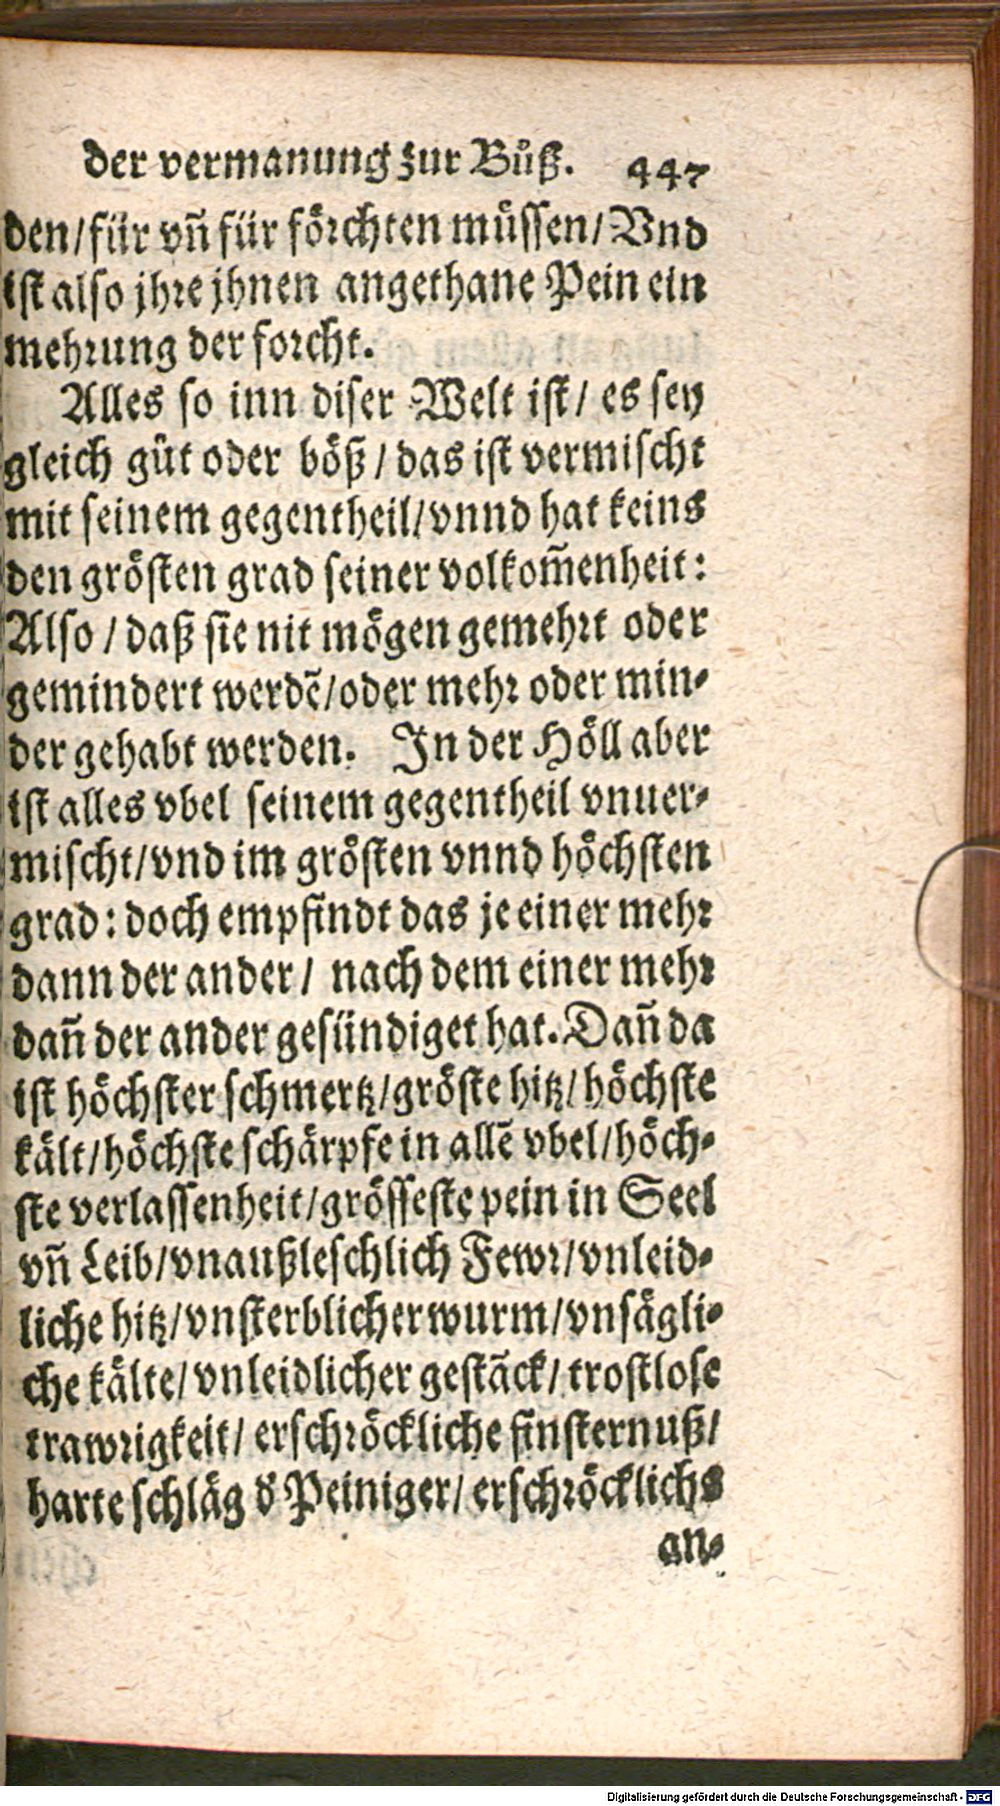 der vermanung zur Bůß. 447
den/für vñ für förchten müssen/Vnd
ist also jhre jhnen angethane Pein ein
mehrung der forcht.
Alles so inn diser Welt ist/ es sey
gleich gůt oder böß/das ist vermischt
mit seinem gegentheil/vnnd hat keins
den grösten grad seiner volkom̃enheit:
Also/daß sie nit mögen gemehrt oder
gemindert werdẽ/oder mehr oder min-
der gehabt werden. In der Höll aber
ist alles vbel seinem gegentheil vnuer-
mischt/vnd im grösten vnnd höchsten
grad: doch empfindt das je einer mehr
dann der ander/ nach dem einer mehr
dañ der ander gesündiget hat. Dañ da
ist höchster schmertz/gröste hitz/höchste
kält/höchste schärpfe in allẽ vbel/höch-
ste verlassenheit/grösseste pein in Seel
vñ Leib/vnaußleschlich Fewr/vnleid-
liche hitz/vnsterblicher wurm/vnsägli-
che kälte/vnleidlicher gestãck/trostlose
trawrigkeit/ erschröckliche finsternuß/
harte schläg d' Peiniger/erschröcklichs
an-
Digitalisierung gefördert durch die Deutsche Forschungsgemeinschaft - DFG